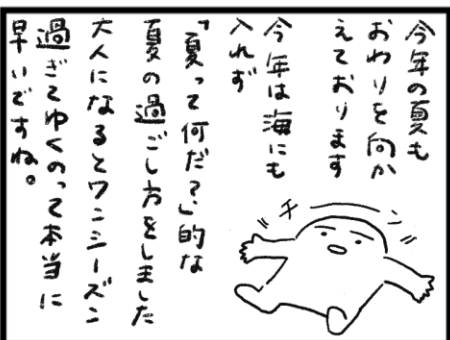 今年の夏も
おわりを向か
えております
今年は海にも
入れず
「夏って何だ？」的な
夏の過ごし方をしました
大人になるとワンシーズン
過ぎてゆくのって本当に
早いですね。
チーン